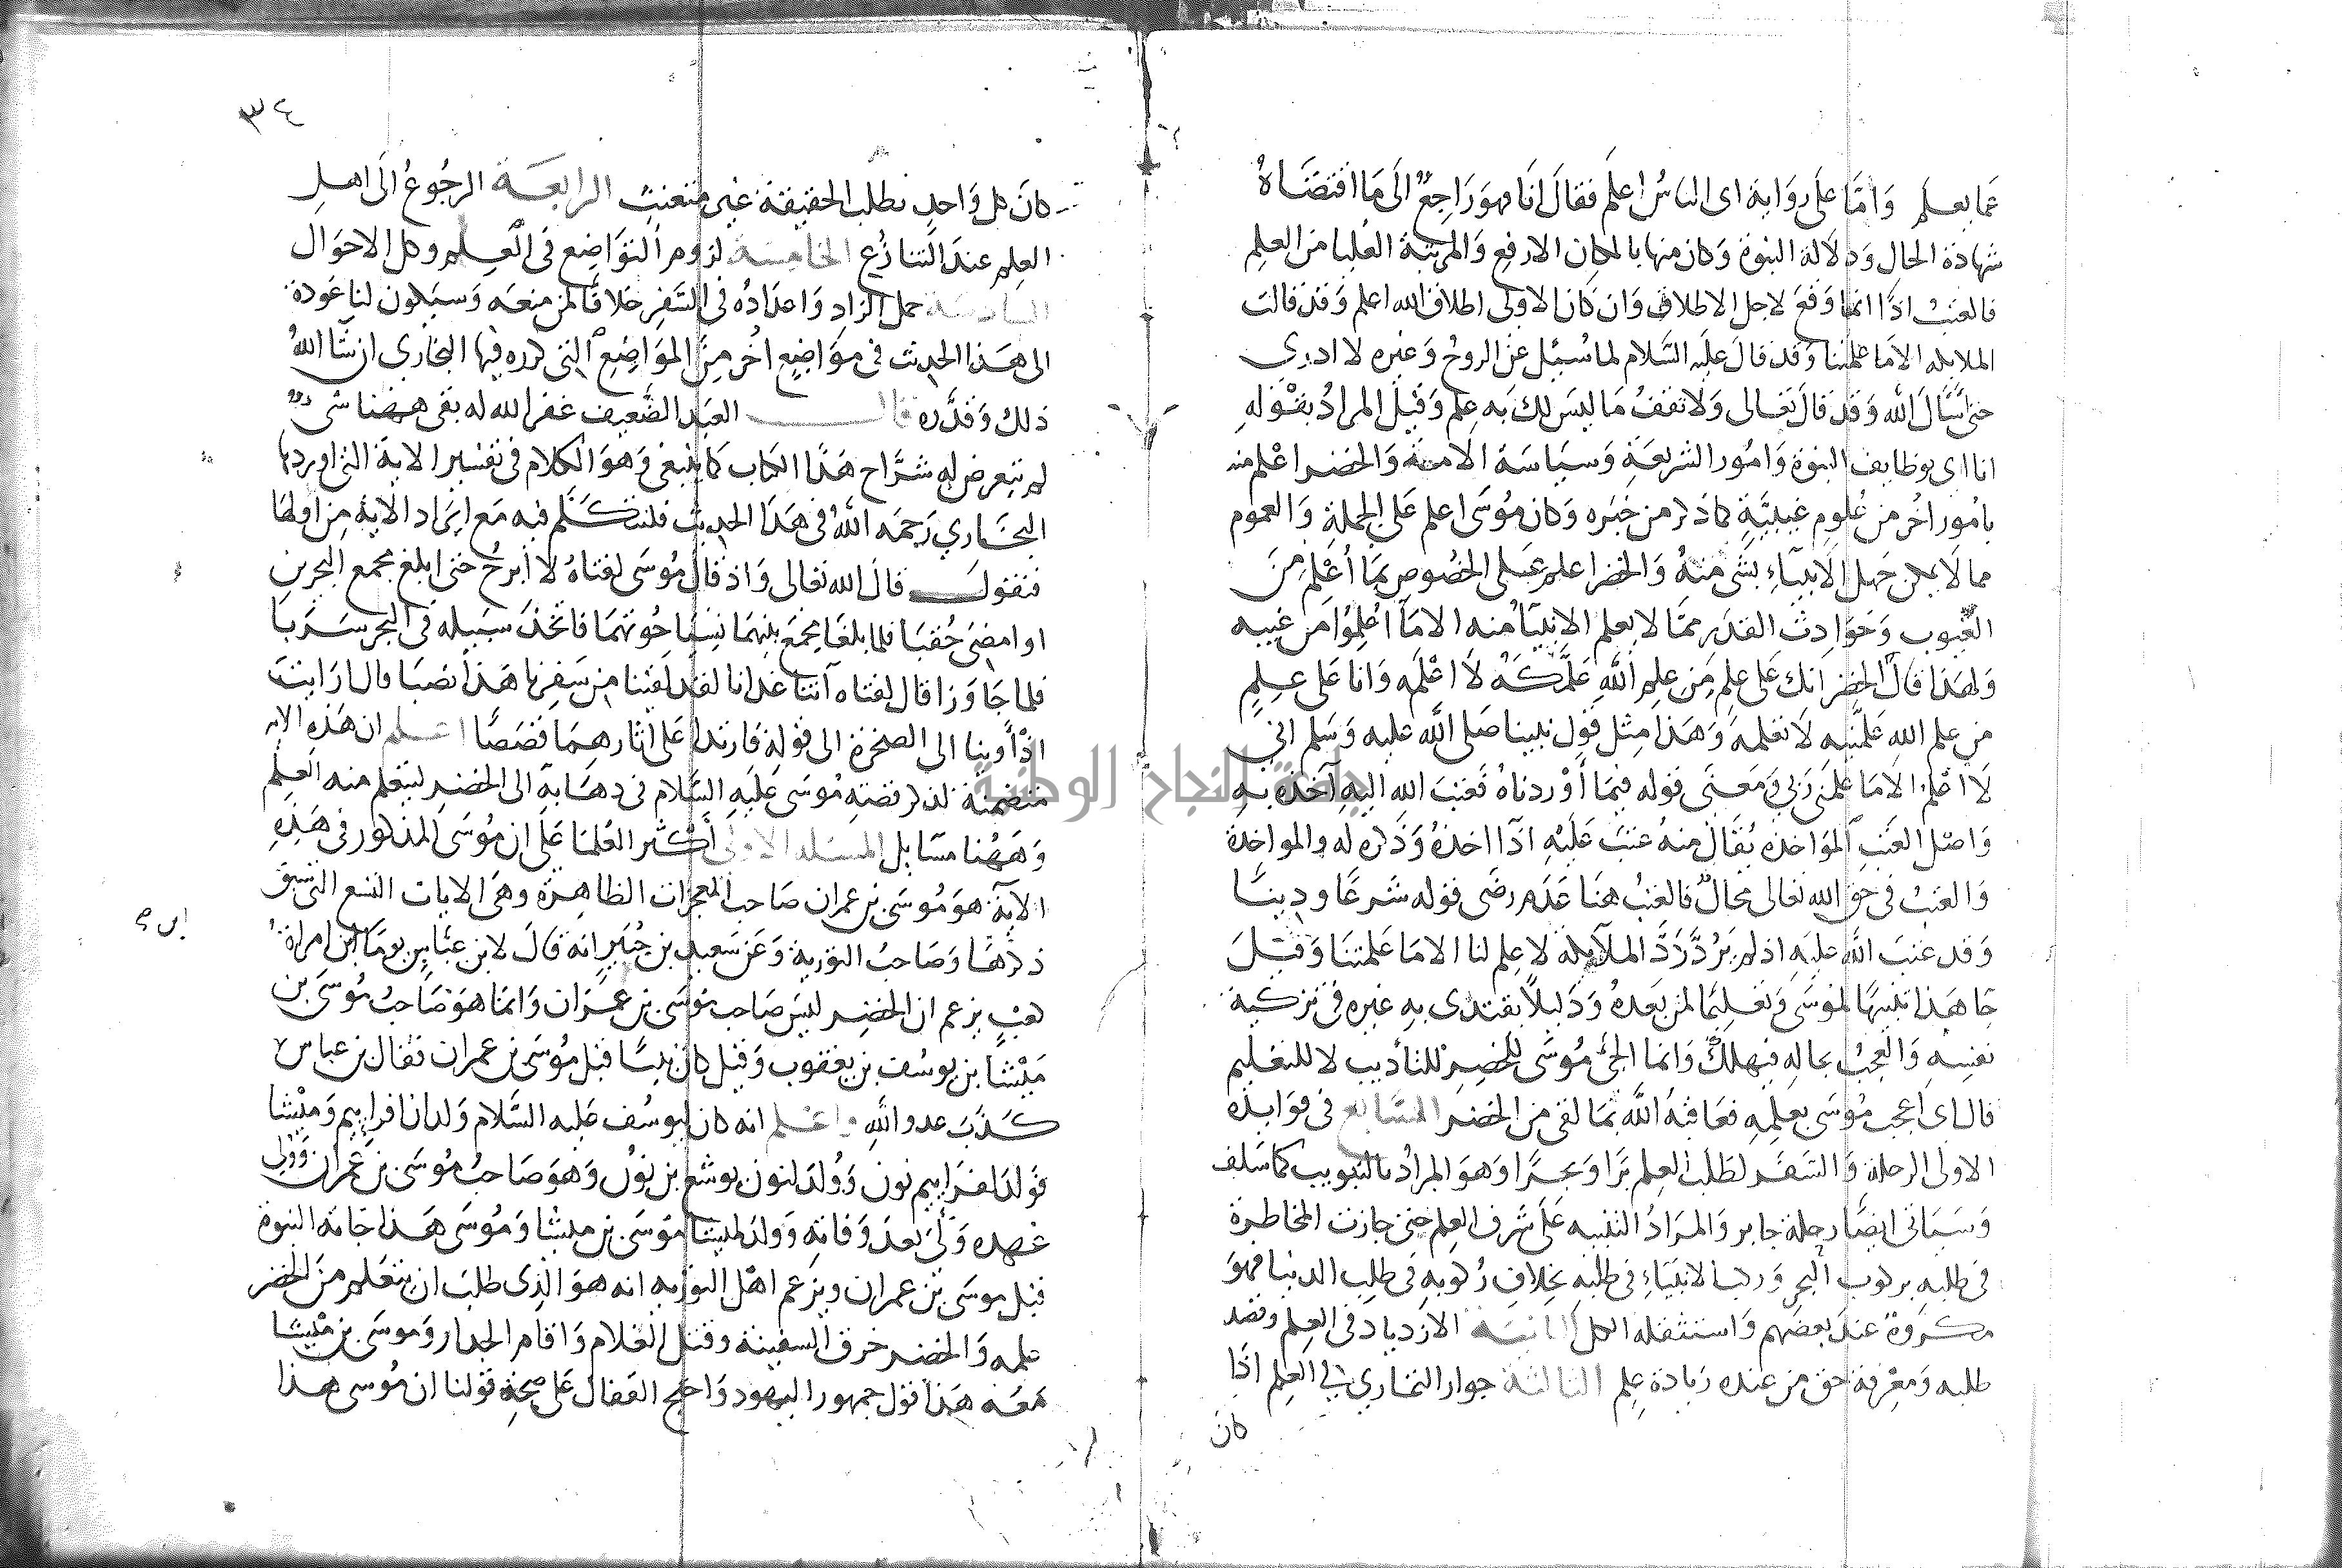 عما يعلم وَامَّا عَلَى روَاية اى الناسُ اعلم فقالَ انَا فهوَ رَاجِعٌ الَى مَا اقتضَاهُ
شهادة الحال وَدلَالة النبوة وَكان منها بالمكان الارفع وَالمرتبة العُليا من العلم
فالعتبُ اذًا انما وَقعَ لاجل الاطلاق وَان كَان الاولى اطلاق الله اعلم وَقد قالت
الملايكه الا مَا علمتنا وَقد قالَ عليه السَّلام لما سُئِل عَن الروحُ وَغيره لا ادرى
حتى اسَّال الله وَقد قالَ تعَالى وَلا تقفُ مَا ليسَ لكَ به علم وَقيْلَ المرادُ بقوْلهِ
انا اى بوظايف النبوة وَامُور الشريعَةِ وَسيَاسَة الامة وَالخضر اعْلم منه
بامُور اخُر من عُلومٍ غيبيَّةٍ كما ذكر من خبَره وَكان مُوسَى اعلم عَلى الجملة وَالعموم
مما لَا يمكن جَهل الانبيَاءِ بشى منهُ وَالخضر اعلم عَلى الخصُوصِ بمَا اُعْلم منَ
الغيوب وَحَوَادِث القدَر ممَّا لا يعلم الانبيَآ منه الا مَا اُعْلِمُوا من غيبه
وَلهَذا قالَ الخضر انك عَلى علمٍ مِن علم اللهِ عَلَّمكَهُ لَا اعْلَمه وَانا عَلى عِلمٍ
من علم اللهِ علَّمنيه لا تعلمه وَهَذا مِثل قول نبينا صَلى الله عليه وَسَلم انى
لَا اعْلم الا مَا علمنى رَبى وَمَعنَى قوله فيمَا اَوْردناهُ فَعتبَ الله اليهِ آخذهُ به
وَاصْل العَتب المؤاخذة يُقَالُ منهُ عتبَ عَليهِ اذَا اخذهُ وَذكره له والمواخذة
وَالعتبُ فى حَق الله تعَالى محَالٌ فالعَتبُ هنَا عَدَم رضَى قوله شَرعًا ودينًا
وَقد عتبَ الله عليهِ اذ لم يَرُدَّ رَدَّ الملآيكة لا عِلم لنا الا مَا عَلمتنَا وَقيْلَ
جَا هَذا تنبيهًا لموسَى وَتعليمًا لمن بعدهُ وَدَليلًا يقتدى بهِ غيره فى تزكية
نفسِهِ وَالعجبُ بحالهِ فيهلكُ وَانما الجئَ مُوسَى للخضِرْ للتأديب لا للتعْليم
قال اى اعجب مُوسَى بعلمِهِ فعَاقبهُ اللَّه بمَا لقى من الخضر السَّابع فى فوَايده
الاولى الرحلة وَالسَّفر لطَلب العلم بَرًّا وَبحرًا وَهوَ المرادُ بالتبويب كمَا سَلف
وَسيَاتى ايضًا رحلة جابر وَالمرَادُ التنبيه عَلى شرف العِلم حتى جازت المخاطرة
فى طلبهِ بركوب البحر وَركب الانبيَاءِ فى طلبه بخِلافِ رُكوبهِ فى طلب الدنيا فهوَ
مكروهٌ عندَ بعضهم وَاستثقله الكل الثانيَة الازدياد فى العِلم وقصد
طلبه وَمعْرفة حق من عنده زيَادة عِلم الثالثة جواز التمارى فى العِلم اذَا
كان
٣٤
كانَ كل وَاحدٍ يطلب الحقيقة غير متعنتٍ الرابعَة الرجُوعُ الَى اهلِ
العلمِ عندَ التنازُع الخامسَة لزوم التوَاضِع فى العِلم وكل الاحوَال
السادسَة حمل الزاد وَاعدَادُه فى السَّفر خلافًا لمن منعَه وَسيَكون لنا عَودة
الى هَذا الحديث فى موَاضِع اخُر مِنَ الموَاضِع التى كرره فيها البخارى ان شَا اللهُ
ذلك وَقدَّره قالـــ العبَد الضَّعيف غفر الله له بقى ههُنا شى
لم يتعرض له شرَّاح هَذا الكتاب كما ينبغى وَهوَ الكلام فى تفسير الاية التى اوردها
البخَارى رَحمَه اللهُ فى هَذا الحديث فلنتكَلَّم فيه مَع ايرَاد الاية مِن اولها
فنقولــ قالَ الله تعَالى وَاذ قالَ مُوسَى لفتاهُ لا ابرحُ حتى ابلغ مجمع البحرين
او امضىَ حُقبَا فلما بلغَا مجمَعَ بينهمَا نسيَا حُوتهمَا فاتخذَ سبَيله فى البحر سَربَا
فلما جَاوَزا قال لفتاه آتنَا غدانا لقد لقينا من سَفرنا هَذا نصَبا قال ارَايتَ
اذْ اَوينا الى الصَخرة الى قولهِ فارتدا عَلى اثارهمَا قصَصًا اعلم ان هَذهِ الايه
متضمنة لذكر قصتهِ مُوسَى عَليهِ السَّلام فى ذهَابهِ الى الخضر ليتعَلم منه العِلم
وَهَهُنا مسَايل المسَله الاولى اَكثر العُلمَا عَلى ان مُوسَى المذكور فى هَذِه
الايَة هوَ مُوسَى بن عمران صَاحب المعجزَات الظاهِرة وَهَى الايات التسع التى سَبق
ذكرهَا وَصَاحبُ التورية وَعَن سَعيد بن جُبَير انه قالَ لابن عبَّاس يومَا ابن امراة
كعْبٍ يزعم ان الخضِر ليسَ صَاحب مُوسَى بن عمرَان وَانمَا هوَ صَاحبُ مُوسَى بن
مَيْشَا بن يوسُف بن يعقوب وَقيْل كانَ نبيًّا قبل مُوسَى بن عمران فقال بن عباس
كَذبَ عدو اللهِ واعْلم انه كانَ ليوسُف عَليه السَّلام وَلدان افراييم وَمَيْشَا
فولدَ لفرَاييم نون وَوُلدَ لنون يوشع بن نوُن وَهوَ صَاحبُ مُوسَى بن عمران وَوَلى
عَهده وَلَى بعدَ وَفاته وَوَلدَ لميشَا مُوسَى بن ميشَا وَمُوسَى هَذا جَاته النبوة
قبل موسَى بن عمران ويزعم اهْل التورية انه هوَ الذِى طلبَ ان يتعَلم منَ الخضر
علمه وَالخضر خرقَ السفينة وقتل الغلام وَاقام الجدار وَموسَى بن مَيْشَا
معَه هَذا قول جمهور اليهود وَاحتج القفال عَلى صحةِ قولنا ان مُوسى هذا